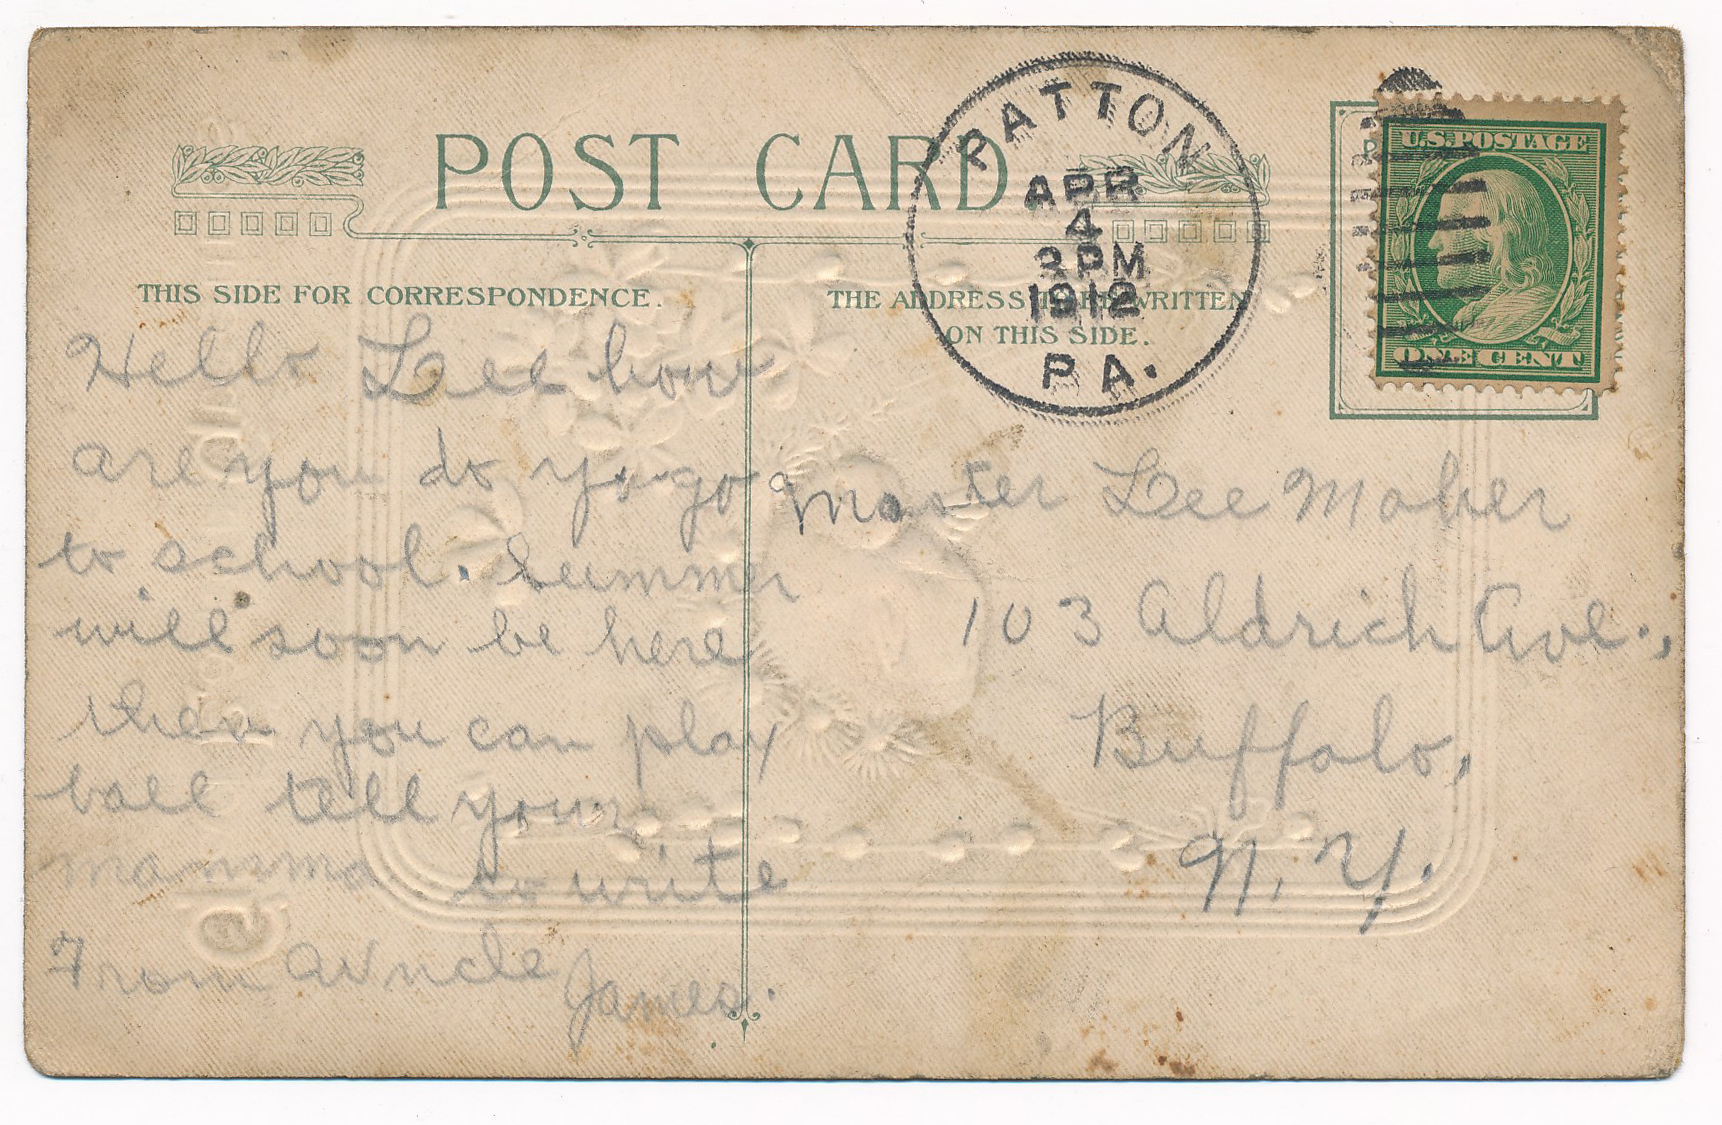 POST CARD
THIS SIDE FOR CORRESPONDENCE.
Hello Lee how
are you do yo go
to school. Summer
will soon be here
then you can play
ball tell your
mamma to write
From Uncle
James.
THE ADDRESS TO BE WRITTEN
ON THIS SIDE.
PATTON
APR
4
PM
1912
PA.
U.S. POSTAGE
ONE CENT
Master Lee Maher
103 Aldrich Ave.,
Buffalo,
N. Y.